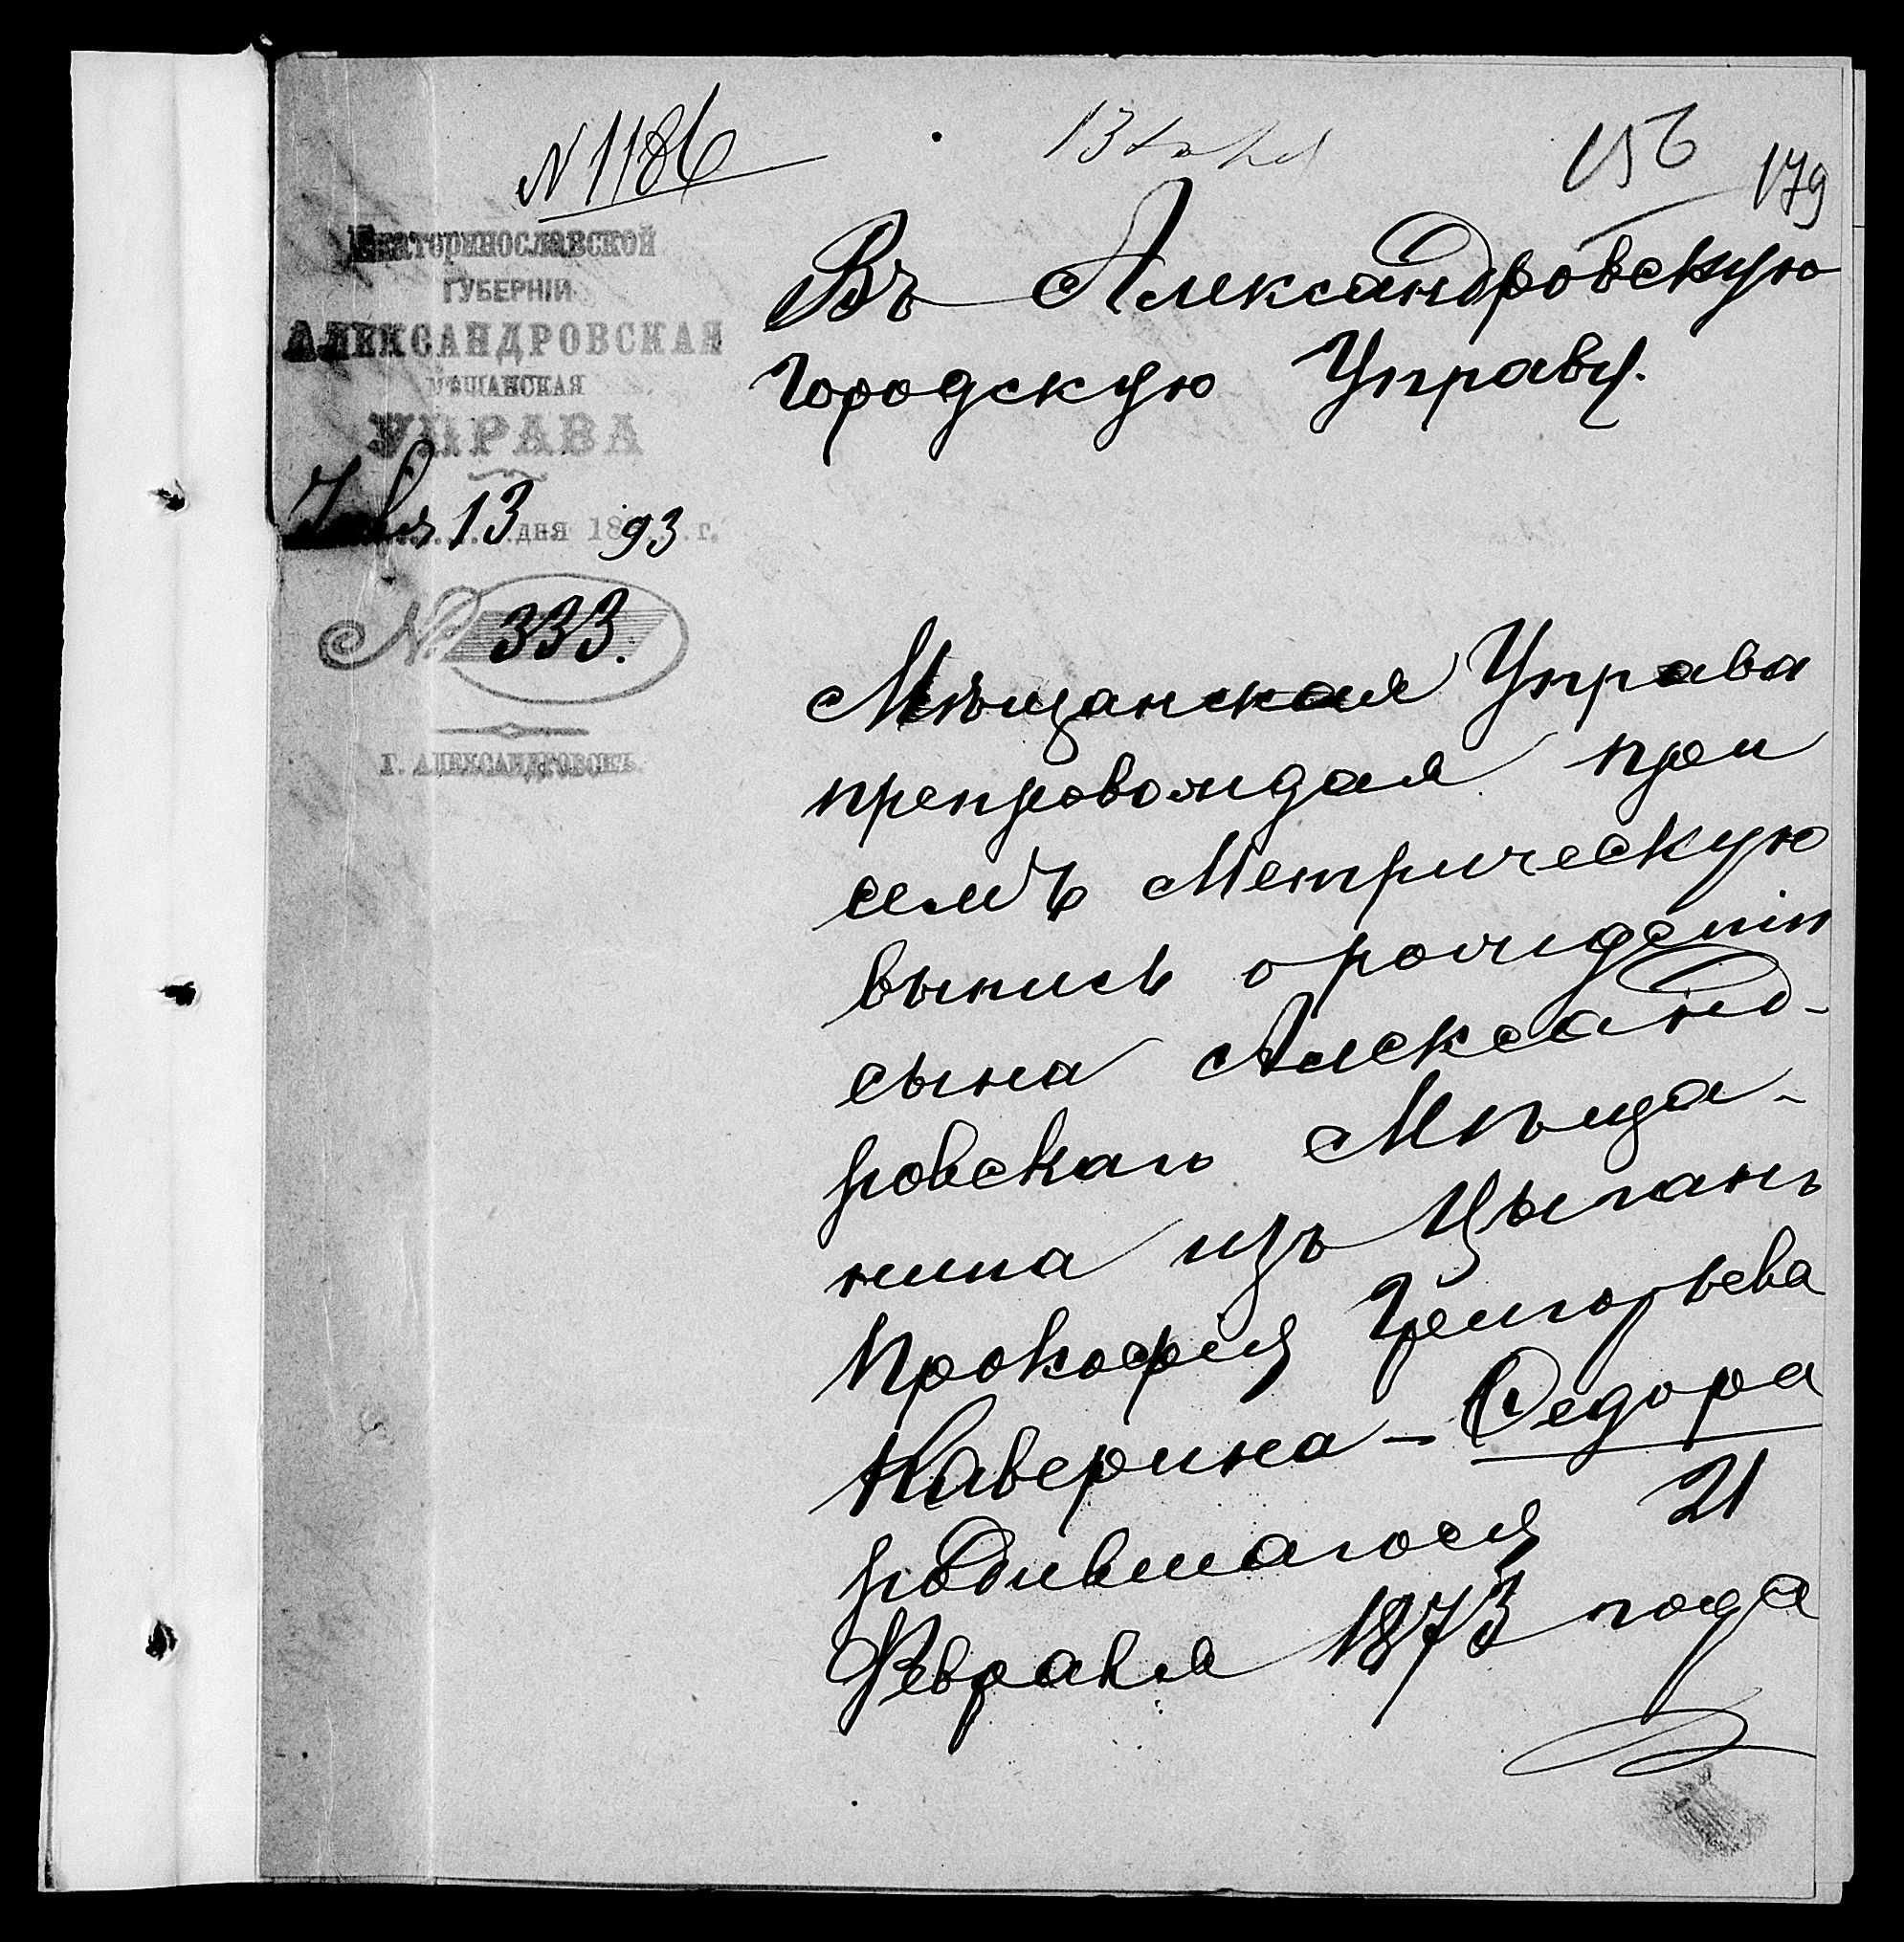 N 1186
156
179
Екатеринославской
ГУБЕРНІИ
АЛЕКСАНДРОВСКАЯ
МѢЩАНСКАЯ
УПРАВА
13 дня 1893 г.
№ 333.
Г. АЛЕКСАНДРОВСКЪ.
Въ Александровскую
Городскую Управу.
Мѣщанская Управа
препровождая при
семъ Метрическую
выпись о рожденіи
сына Александ-
ровскаго Мѣща-
нина изъ Цыганъ
Прокофія Григорьева
Каверина - Федора
родившагося 21
Февраля 1873 года